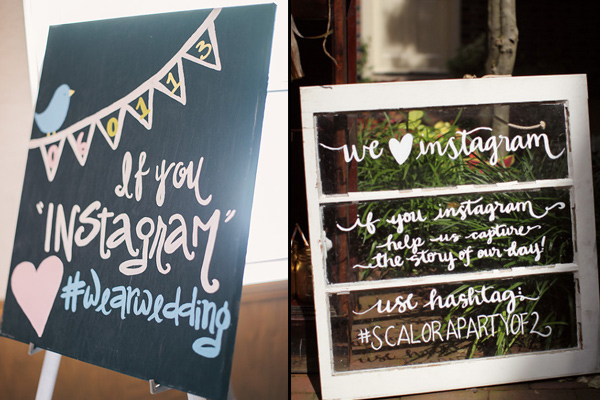 060113
If you
"INStagram"
#wearwedding
we instagram
if you instagram
help us capture
the story of our day!
use hashtag:
#SCALORAPARTYOF2